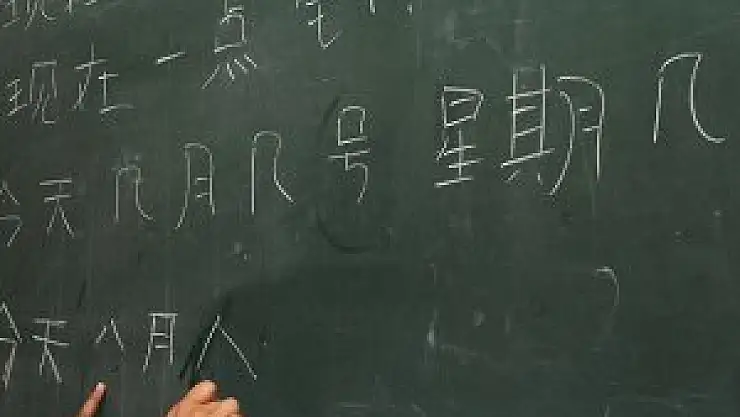 现在
现在一点
今天几月几号 星期几
今天八月八